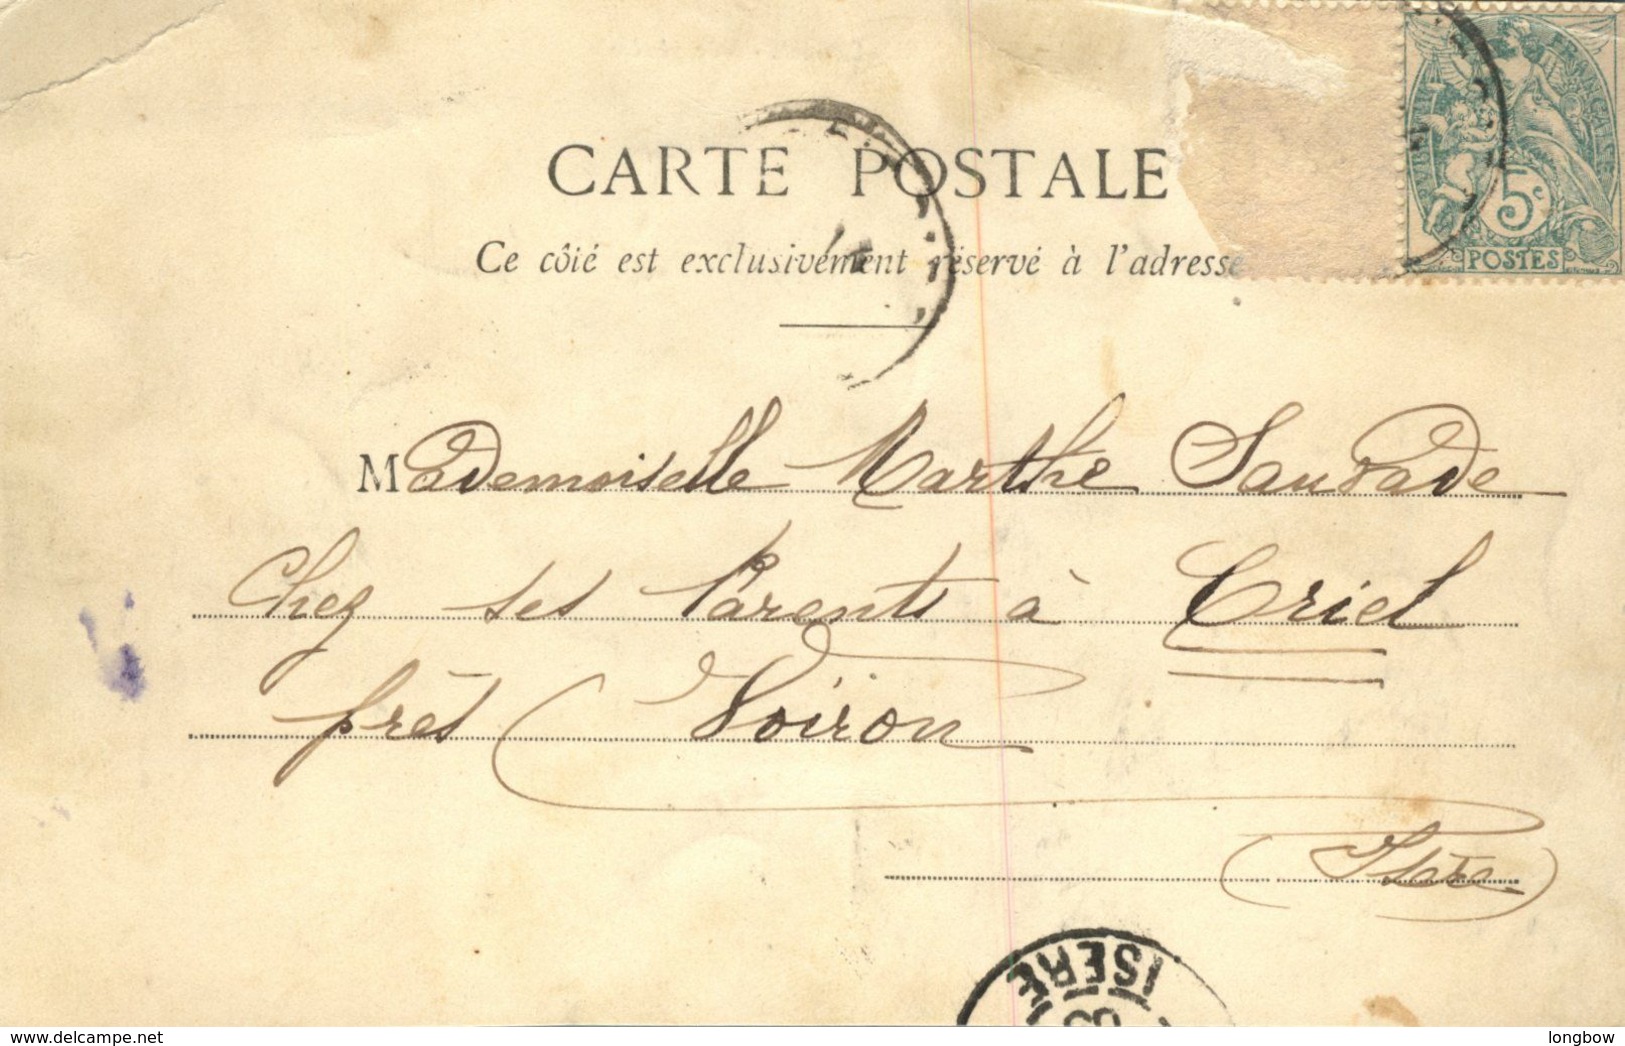 CARTE POSTALE
RÉPUBLIQUE FRANÇAISE
5c
POSTES
Ce côté est exclusivement réservé à l'adresse
Mademoiselle Marthe Sauvade
Chez ses Parents à Criel
près Voiron
(Isère)
ISÈRE
delcampe.net
longbow